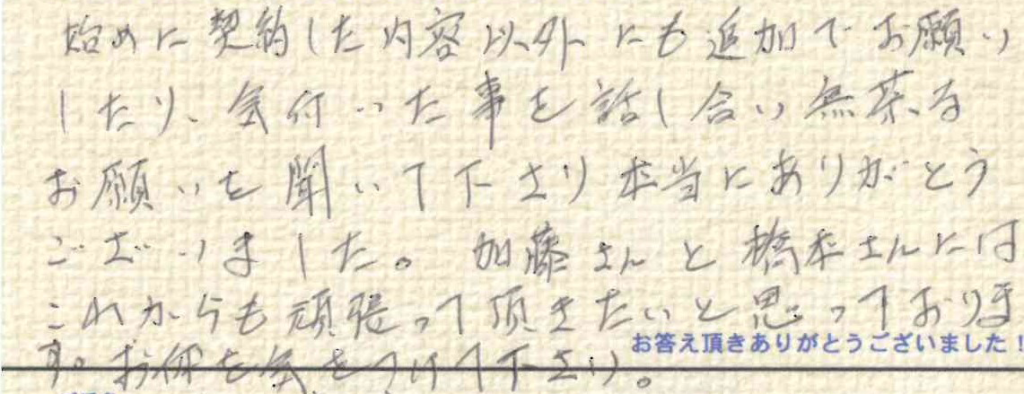 始めに契約した内容以外にも追加でお願い
したり、気付いた事を話し合い無茶な
お願いを聞いて下さり本当にありがとう
ございました。加藤さんと橋本さんには
これからも頑張って頂きたいと思っておりま
お答え頂きありがとうございました!
す。お体を気をつけて下さい。